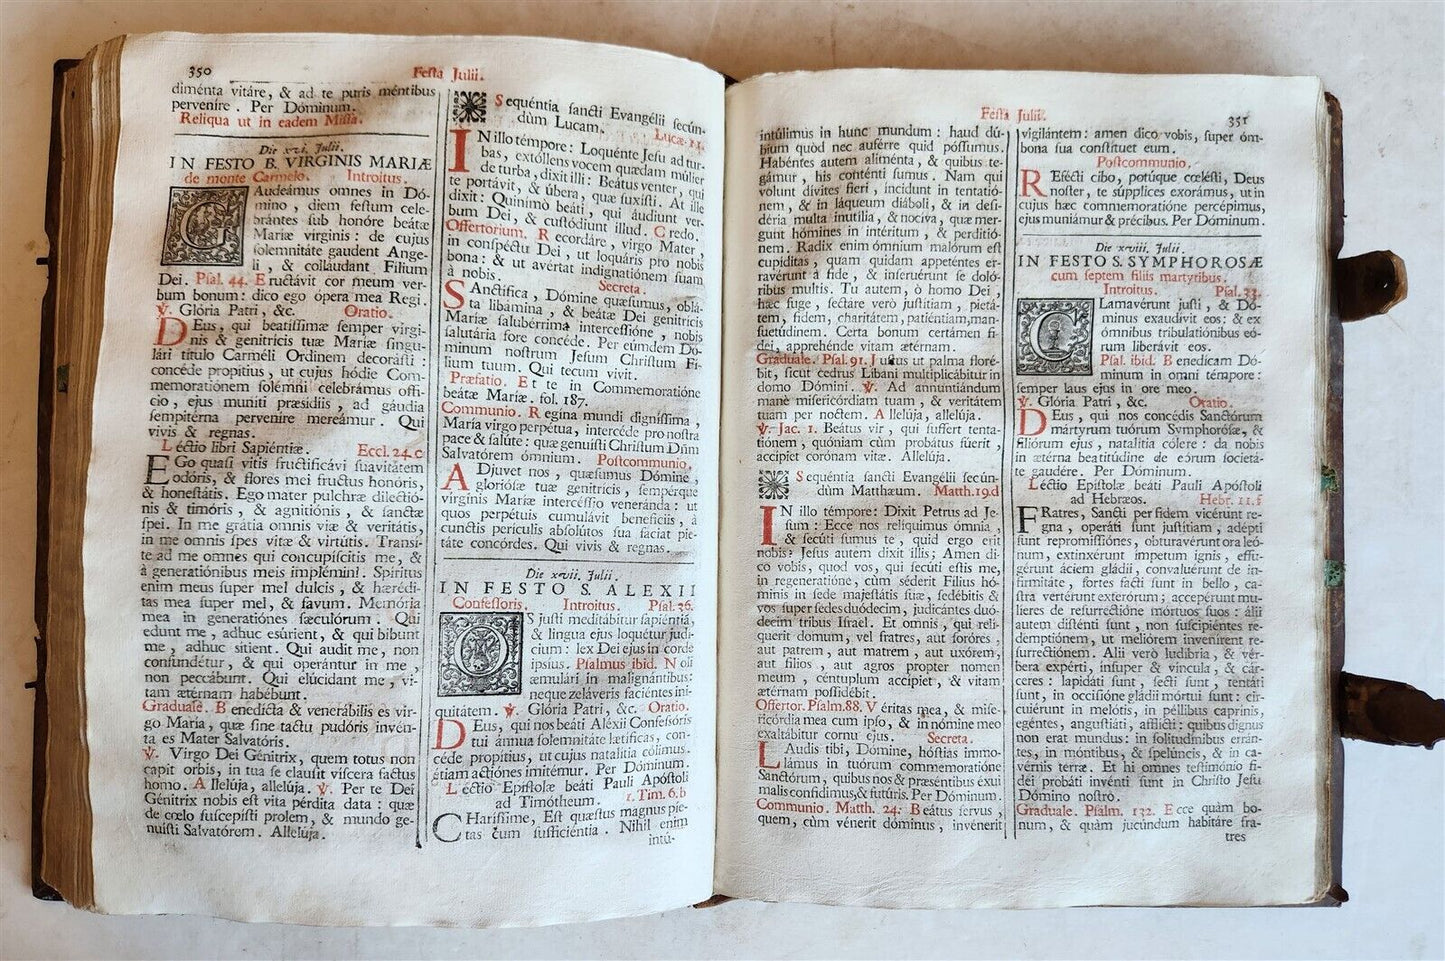 350
Festa Julii.
diménta vitáre, & ad te puris méntibus
pervenire. Per Dóminum.
Reliqua ut in eadem Missa.
Die xvi. Julii.
IN FESTO B. VIRGINIS MARIÆ
de monte Carmelo. Introitus.
GAudeámus omnes in Dó-
mino, diem festum cele-
brántes sub honóre beátæ
Mariæ virginis: de cujus
solemnitáte gaudent Ange-
li, & colláudant Filium
Dei. Psal. 44. Eructávit cor meum ver-
bum bonum: dico ego ópera mea Regi.
℣. Glória Patri, &c. Oratio.
DEus, qui beatissimæ semper virgi-
nis & genitricis tuæ Mariæ singu-
lári titulo Carméli Ordinem decorásti:
concéde propitius, ut cujus hódie Com-
memoratiónem solémni celebrámus offi-
cio, ejus muniti præsidiis, ad gáudia
sempitérna pervenire mereámur. Qui
vivis & regnas.
Léctio libri Sapiéntiæ. Eccl. 24. c
EGo quasi vitis fructificávi suavitátem
odóris, & flores mei fructus honóris,
& honestátis. Ego mater pulchræ dilectió-
nis & timóris, & agnitiónis, & sanctæ
spei. In me grátia omnis viæ & veritátis,
in me omnis spes vitæ & virtútis. Transi-
te ad me omnes qui concupiscitis me, &
à generatiónibus meis implémini. Spiritus
enim meus super mel dulcis, & hærédi-
tas mea super mel, & favum. Memória
mea in generatiónes sæculórum. Qui
edunt me, adhuc esúrient, & qui bibunt
me, adhuc sitient. Qui audit me, non
confundétur, & qui operántur in me,
non peccábunt. Qui elúcidant me, vi-
tam ætérnam habébunt.
Graduale. Benedícta & venerábilis es vir-
go Maria, quæ sine tactu pudóris invén-
ta es Mater Salvatóris.
℣. Virgo Dei Génitrix, quem totus non
capit orbis, in tua se clausit víscera factus
homo. Allelúja, allelúja. ℣. Per te Dei
Génitrix nobis est vita pérdita data: quæ
de cœlo suscepisti prolem, & mundo ge-
nuisti Salvatórem. Allelúja.
Sequéntia sancti Evangélii secún-
dùm Lucam. Lucæ 11.
IN illo témpore: Loquénte Jesu ad tur-
bas, extóllens vocem quædam múlier
de turba, dixit illi: Beátus venter, qui
te portávit, & úbera, quæ suxisti. At ille
dixit: Quinimò beáti, qui áudiunt ver-
bum Dei, & custódiunt illud. Credo.
Offertorium. Recordáre, virgo Mater,
in conspéctu Dei, ut loquáris pro nobis
bona: & ut avértat indignatiónem suam
à nobis. Secreta.
SAnctifica, Dómine quæsumus, oblá-
ta libámina, & beátæ Dei genitricis
Mariæ salubérrima intercessióne, nobis
salutária fore concéde. Per eúmdem Dó-
minum nostrum Jesum Christum Fi-
lium tuum. Qui tecum vivit.
Præfatio. Et te in Commemoratióne
beátæ Mariæ. fol. 187.
Communio. Regina mundi dignissima,
María virgo perpétua, intercéde pro nostra
pace & salúte: quæ genuisti Christum Dñm
Salvatórem ómnium. Postcommunio.
ADjuvet nos, quæsumus Dómine,
gloriósæ tuæ genitricis, sempérque
vírginis Mariæ intercéssio veneránda: ut
quos perpétuis cumulávit beneficiis, à
cunctis periculis absolútos sua fáciat pie-
táte concórdes. Qui vivis & regnas.
Die xvii. Julii.
IN FESTO S. ALEXII
Confessoris. Introitus. Psal. 36.
OS justi meditábitur sapiéntiã,
& lingua ejus loquétur judi-
cium: lex Dei ejus in corde
ipsius. Psalmus ibid. Noli
æmulári in malignántibus:
neque zeláveris faciéntes ini-
quitátem. ℣. Glória Patri, &c. Oratio.
DEus, qui nos beáti Aléxii Confessóris
tui ánnua solemnitáte lætíficas, con-
céde propitius, ut cujus natalitia cólimus,
étiam actiónes imitémur. Per Dóminum.
Léctio Epistolæ beáti Pauli Apóstoli
ad Timótheum. 1. Tim. 6. b
CHarissime, Est quæstus magnus pie-
tas cum sufficiéntia. Nihil enim
intú-
Festa Julii.
351
intúlimus in hunc mundum: haud dú-
bium quòd nec auférre quid póssumus.
Habéntes autem aliménta, & quibus te-
gámur, his conténti sumus. Nam qui
volunt dívites fieri, incidunt in tentatió-
nem, & in láqueum diáboli, & in desi-
déria multa inutilia, & nociva, quæ mer-
gunt hómines in intéritum, & perditió-
nem. Radix enim ómnium malórum est
cupiditas, quam quidam appeténtes er-
ravérunt à fide, & inseruérunt se doló-
ribus multis. Tu autem, ò homo Dei,
hæc fuge, sectáre verò justitiam, pietá-
tem, fidem, charitátem, patiéntiam, man-
suetúdinem. Certa bonum certámen fi-
dei, apprehénde vitam ætérnam.
Graduale. Psal. 91. Justus ut palma floré-
bit, sicut cedrus Líbani multiplicábitur in
domo Dómini. ℣. Ad annuntiándum
manè misericórdiam tuam, & veritátem
tuam per noctem. Allelúja, allelúja.
℣. Jac. 1. Beátus vir, qui suffert tenta-
tiónem, quóniam cùm probátus fúerit,
accipiet corónam vitæ. Allelúja.
Sequéntia sancti Evangelii secún-
dùm Matthæum. Matth. 19. d
IN illo témpore: Dixit Petrus ad Je-
sum: Ecce nos reliquimus ómnia,
& secúti sumus te, quid ergo erit
nobis? Jesus autem dixit illis; Amen di-
co vobis, quod vos, qui secúti estis me,
in regeneratióne, cùm séderit Filius hó-
minis in sede majestátis suæ, sedébitis &
vos super sedes duódecim, judicántes duó-
decim tribus Israel. Et omnis, qui reli-
querit domum, vel fratres, aut soróres,
aut patrem, aut matrem, aut uxórem,
aut filios, aut agros propter nomen
meum, céntuplum accipiet, & vitam
ætérnam possidébit.
Offertor. Psalm. 88. Véritas mea, & mise-
ricórdia mea cum ipso, & in nómine meo
exaltábitur cornu ejus. Secreta.
LAudis tibi, Dómine, hóstias immo-
lámus in tuórum commemoratióne
Sanctórum, quibus nos & præséntibus éxui
malis confidimus, & futúris. Per Dóminum.
Communio. Matth. 24. Beátus servus,
quem, cùm vénerit dóminus, invénerit
vigilántem: amen dico vobis, super óm-
bona sua constituet eum.
Postcommunio.
REfécti cibo, potúque cœlésti, Deus
noster, te súpplices exorámus, ut in
cujus hæc commemoratióne percépimus,
ejus muniámur & précibus. Per Dóminum.
Die xviii. Julii.
IN FESTO S. SYMPHOROSÆ
cum septem filiis martyribus.
Introitus. Psal. 33.
CLamavérunt justi, & Dó-
minus exaudivit eos: & ex
ómnibus tribulatiónibus eó-
rum liberávit eos.
Psal. ibid. Benedicam Dó-
minum in omni témpore:
semper laus ejus in ore meo.
℣. Glória Patri, &c. Oratio.
DEus, qui nos concédis Sanctórum
mártyrum tuórum Symphorósæ, &
filiórum ejus, natalitia cólere: da nobis
in ætérna beatitúdine de eórum societá-
te gaudére. Per Dóminum.
Léctio Epistolæ beáti Pauli Apóstoli
ad Hebræos. Hebr. 11. f
FRatres, Sancti per fidem vicérunt re-
gna, operáti sunt justitiam, adépti
sunt repromissiónes, obturavérunt ora leó-
num, extinxérunt impetum ignis, effu-
gérunt áciem gládii, convaluérunt de in-
firmitáte, fortes facti sunt in bello, ca-
stra vertérunt exterórum; accepérunt mu-
líeres de resurrectióne mórtuos suos: álii
autem disténti sunt, non suscipiéntes re-
demptiónem, ut meliórem invenirent re-
surrectiónem. Alii verò ludibria, & vér-
bera expérti, insuper & vincula, & cár-
ceres: lapidáti sunt, secti sunt, tentáti
sunt, in occisióne gládii mórtui sunt: cir-
cuiérunt in melótis, in péllibus caprinis,
egéntes, angustiáti, afflicti: quibus dignus
non erat mundus: in solitudinibus errán-
tes, in móntibus, & spelúncis, & in ca-
vérnis terræ. Et hi omnes testimónio fi-
dei probáti invénti sunt in Christo Jesu
Dómino nostro.
Graduale. Psalm. 132. Ecce quàm bo-
num, & quàm jucúndum habitáre fra-
tres